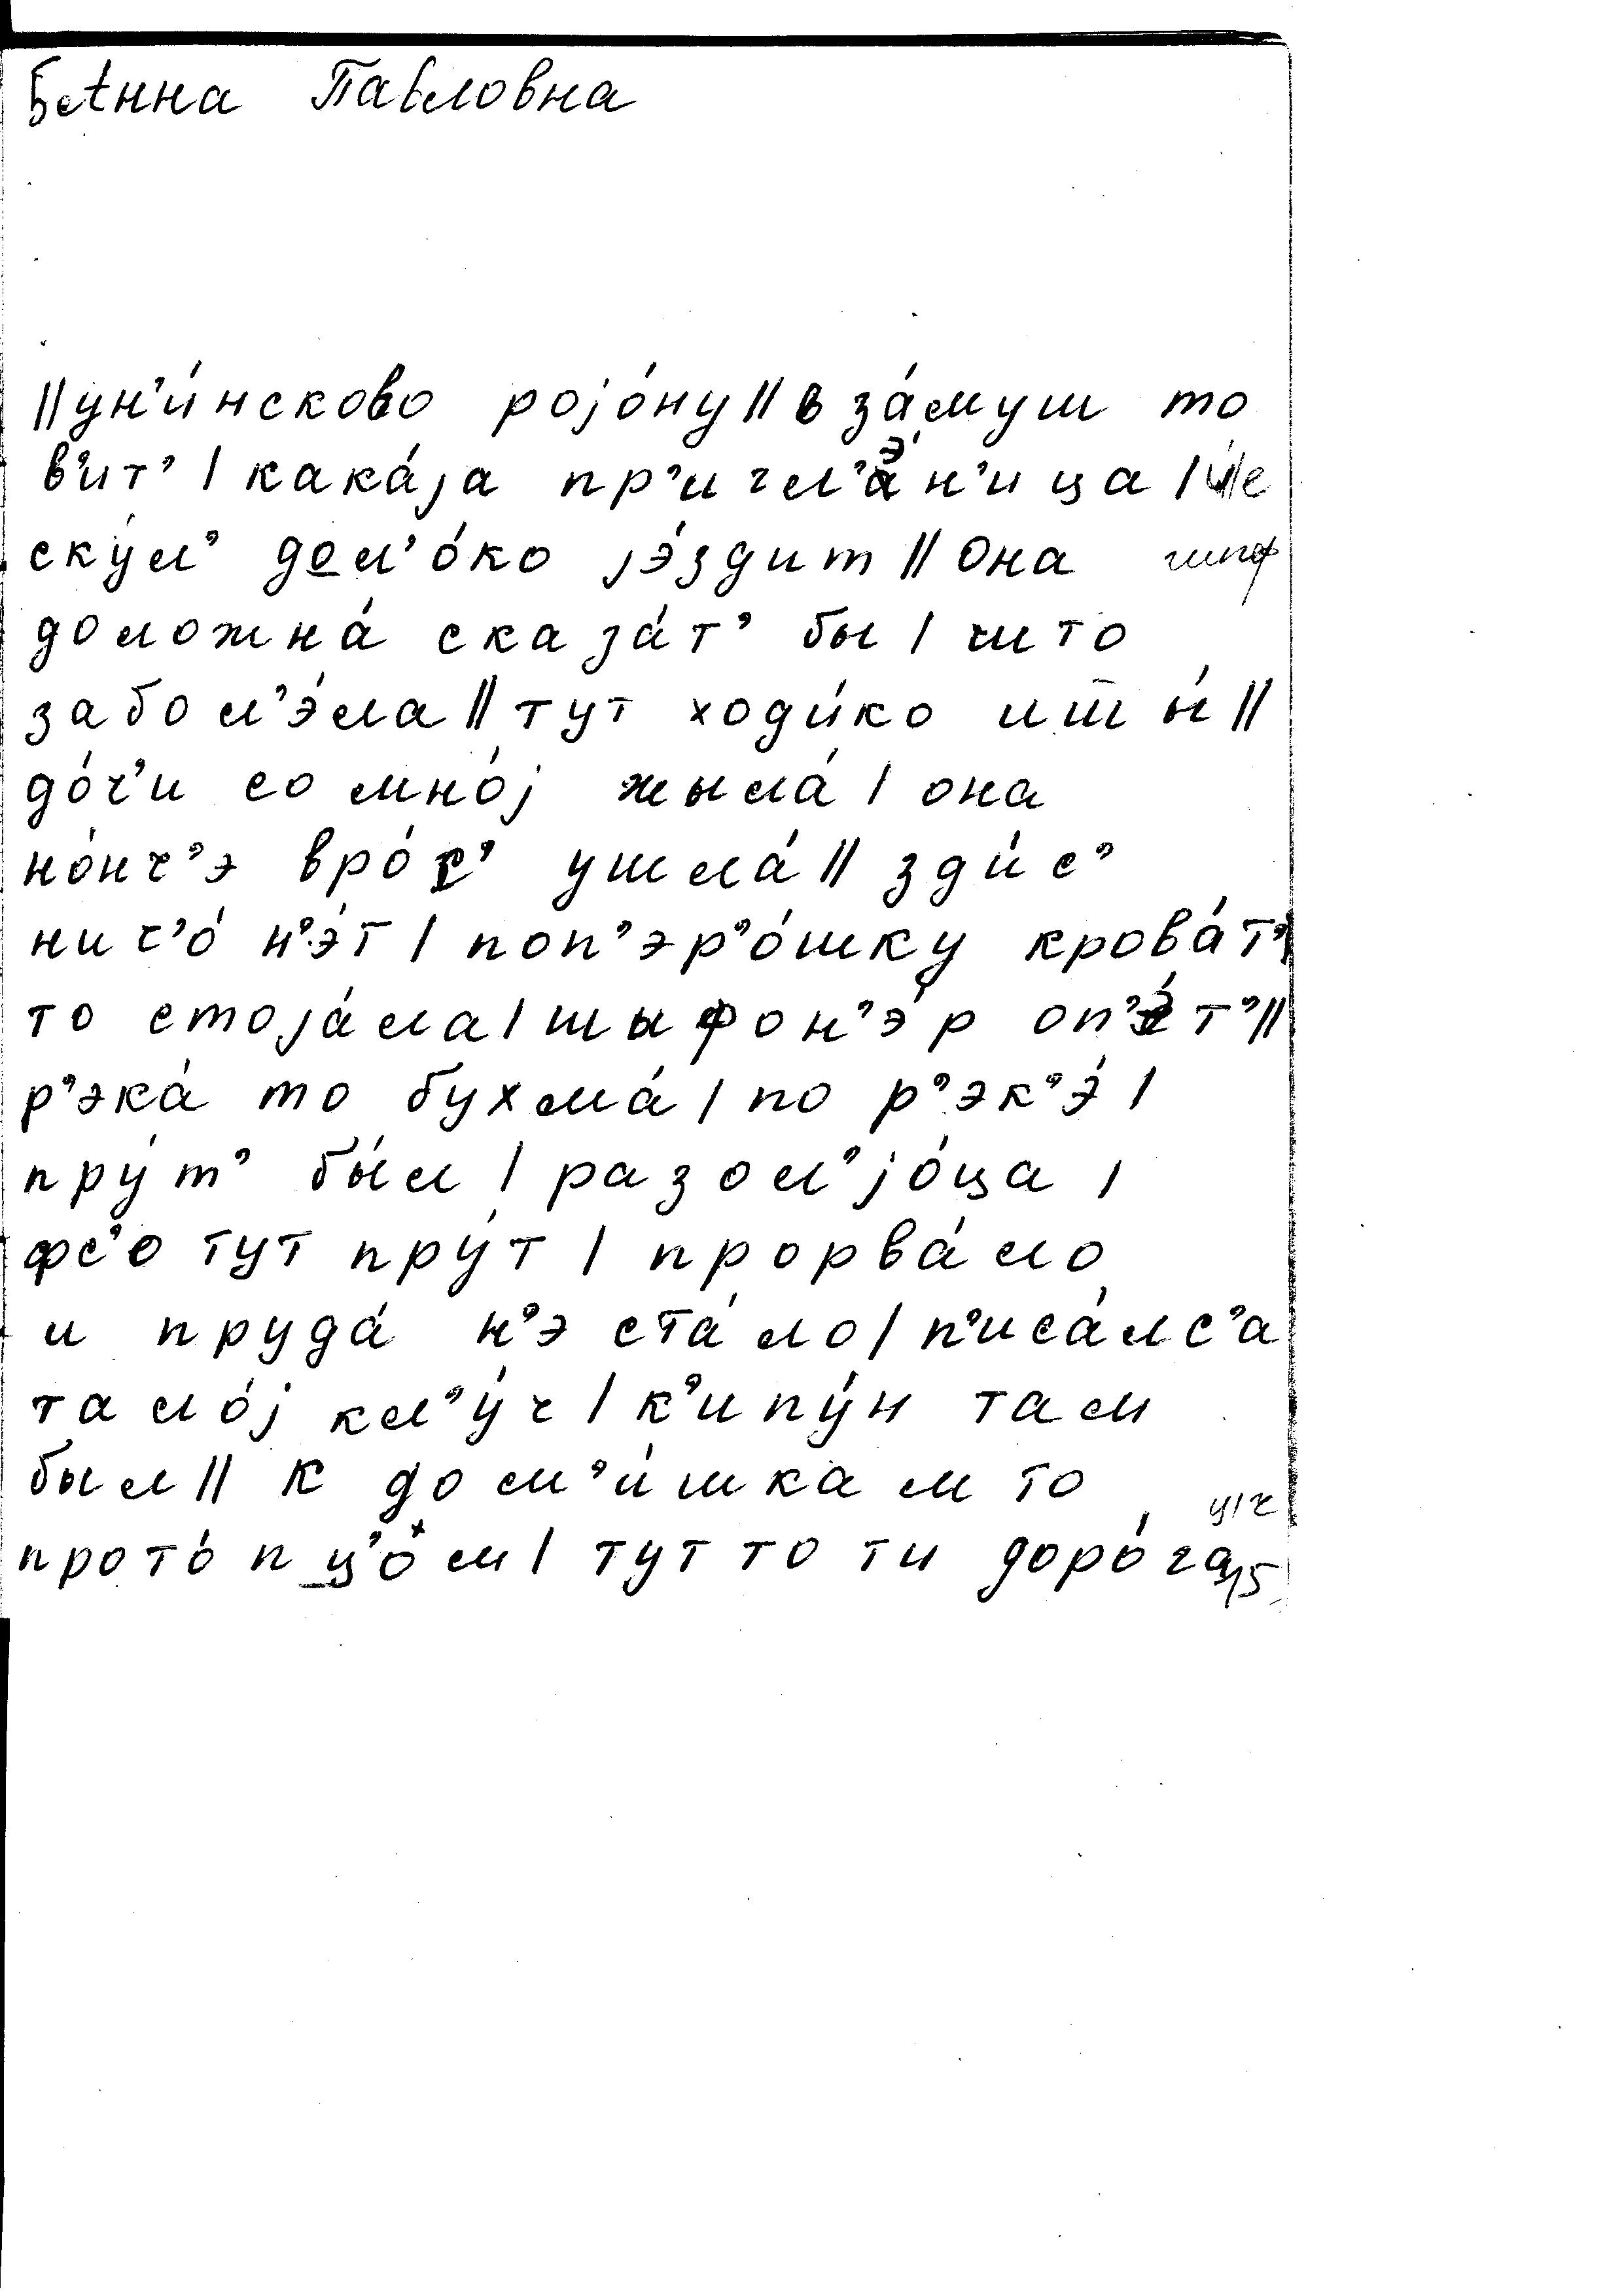 Павловна
||ун’и́нсково роjо́ну|| в за́муш то
в’ит’ | кака́jа пр’игл’э́н’ица |
ску́л’ дол’о́ко jэ́здит || она
доложна́ сказа́т’ бы | што
забол’э́ла || тут ходи́ко
до́ч’и со мно́j жыла́ | она
но́нч’э вро́с’ ушла́ || зди́с’
нич’о́ н’э́т | поп’эр’о́шку крова́т’
то стоjа́ла | шыфон’э́р оп’э́т’ ||
р’эка́ то бухла́ | по р’эк’э́ |
пру́т’ бы́л | разол’jо́ца |
фс’о тут пру́т | прорва́ло
и пруда́ н’э ста́ло | п’иса́лс’а
тало́j кл’у́ч | к’ипу́н там
был || к дом’и́шкам то
прото́пц’о́м | тут то ти доро́га